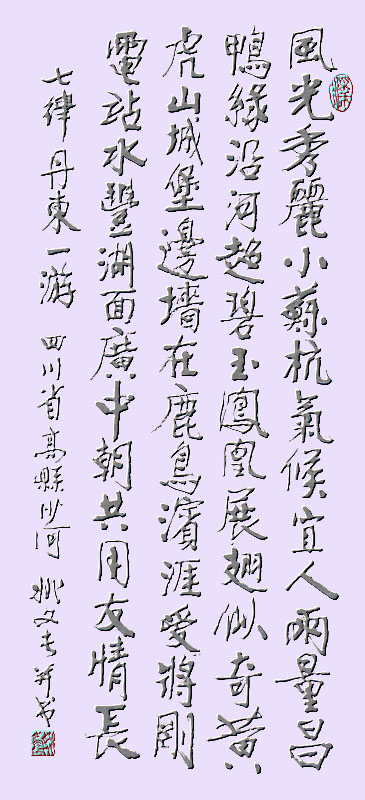 風光秀麗小蘇杭氣候宜人雨量昌
鴨綠沿河超碧玉鳳凰展翅似奇黃
虎山城堡邊墻在鹿鳥濱涯愛將剛
電站水豐湖面廣中朝共用友情長
七律 丹東一游 四川省高縣沙河 姚文長并書